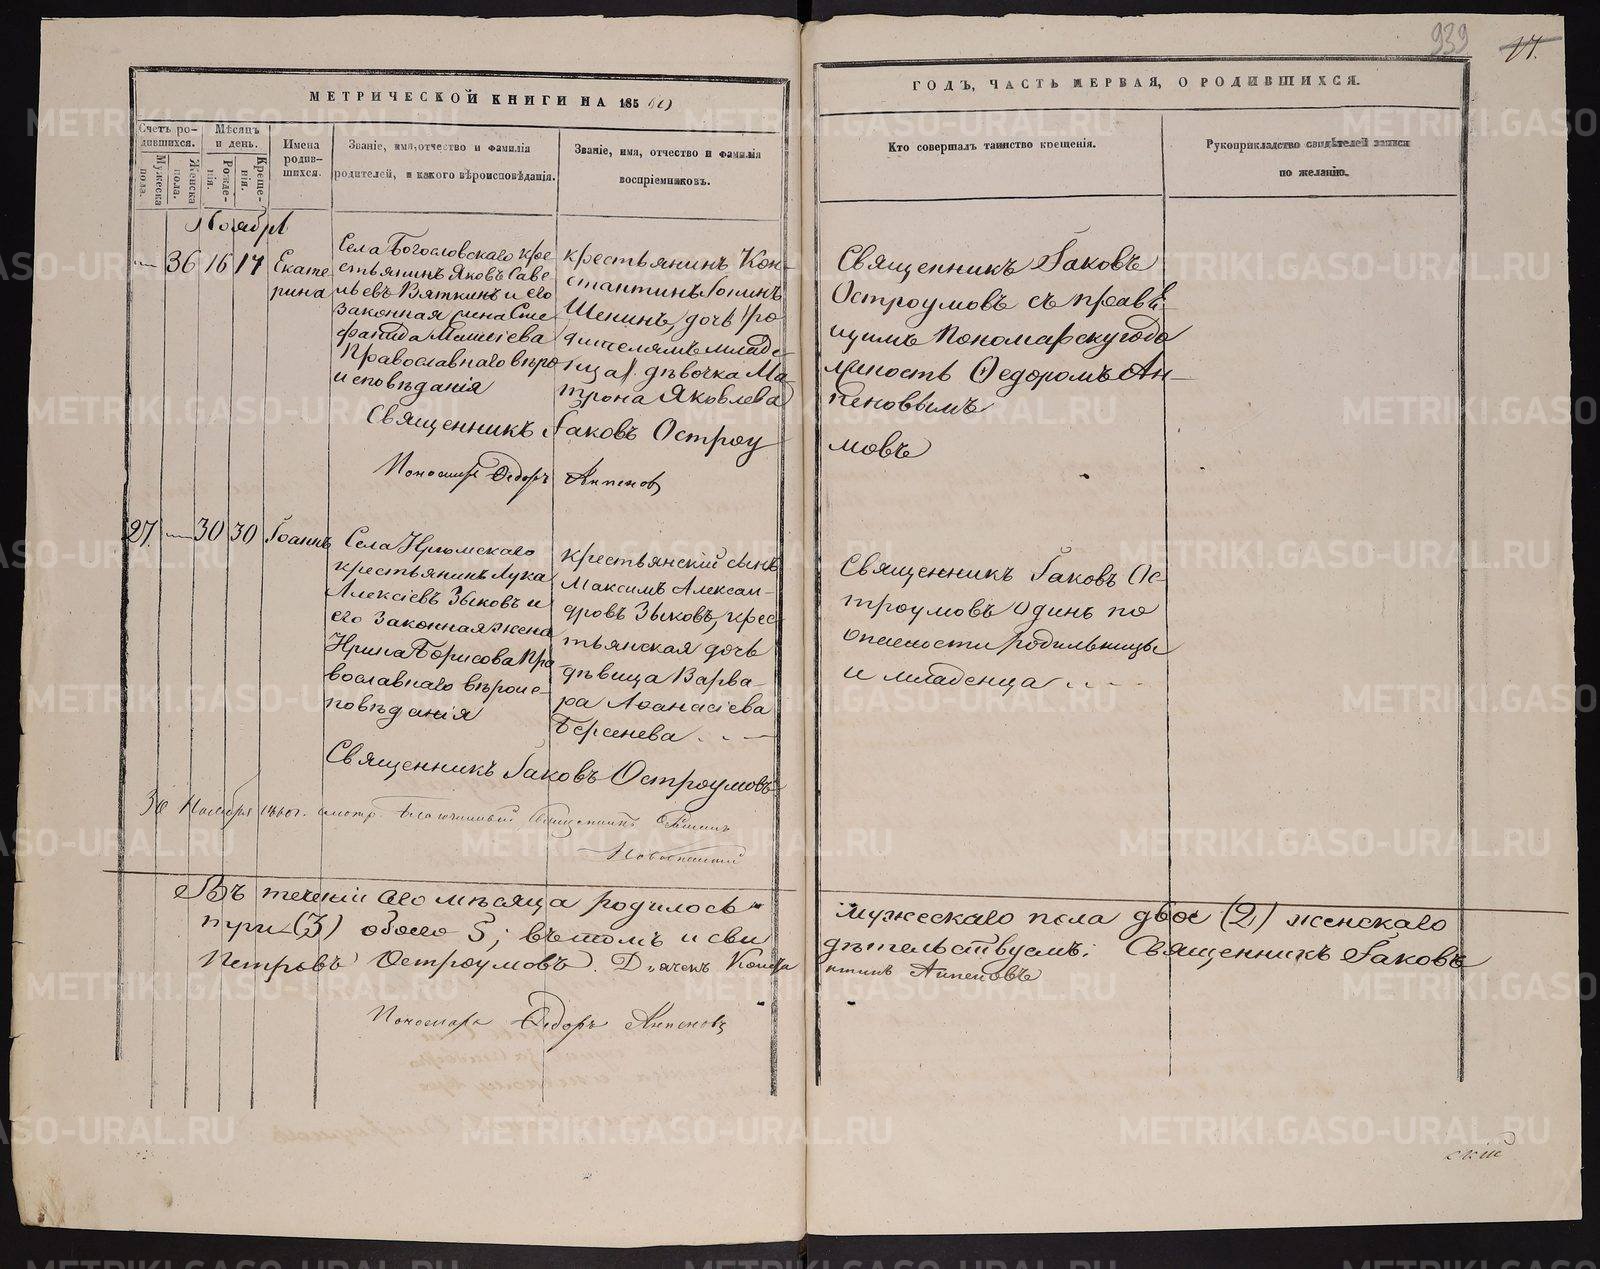 939 17.
МЕТРИЧЕСКОЙ КНИГИ НА 185 60
ГОДЪ, ЧАСТЬ ПЕРВАЯ, О РОДИВШИХСЯ.
Счетъ ро-
дившихся.
Мужеска
пола.
Женска
пола.
Мѣсяцъ
и день.
Рожде-
нія.
Креще-
нія.
Имена
родив-
шихся.
Званіе, имя, отчество и фамилія
родителей, и какого вѣроисповѣданія.
Званіе, имя, отчество и фамилія
воспріемниковъ.
Кто совершалъ таинство крещенія.
Рукоприкладство свидѣтелей записи
по желанію.
Ноября
— 36 16 17
Екате
рина
Села Богословскаго кре
стьянинъ Яковъ Саве
льевъ Вяткинъ и его
законная
Православнаго вѣро
исповѣданія
крестьянинъ Кон-
стантинъ
Шенинъ, дочь
Ма-
трона Яковлева
Священникъ Іаковъ
Остроумовъ съ правѣ
щимъ Пономарскую до
лжность Ѳедоромъ Ан-
пеновымъ
Священникъ Іаковъ Остроу
мовъ
Пономарь Ѳедоръ Анпенов
27. — 30 30 Іоаннъ
Села
крестьянинъ Лука
Алексіевъ Зыковъ и
его законная жена
Ирина Борисова Пра
вославнаго вѣроис-
повѣданія
Крестьянскій сынъ
Максимъ Алексан-
дровъ Зыковъ, крес-
тьянская дочь
дѣвица Варва-
ра Аѳанасіева
Берсенева
Священникъ Іаковъ Ос-
троумовъ одинъ по
опасности родильницы
и младенца
Священникъ Іаковъ Остроумовъ
30 Ноября 1860 г. смотр. Благочинный Священникъ
Въ теченіи сего мѣсяца родилось мужескаго пола двое (2) женскаго
три (3) обоего 5; въ томъ и сви дѣтельствуемъ: Священникъ Іаковъ
Петровъ Остроумовъ. Дьячекъ Конста нтинъ Анпеновъ
Пономарь Ѳедоръ Анпеновъ
скій
METRIKI.GASO-URAL.RU